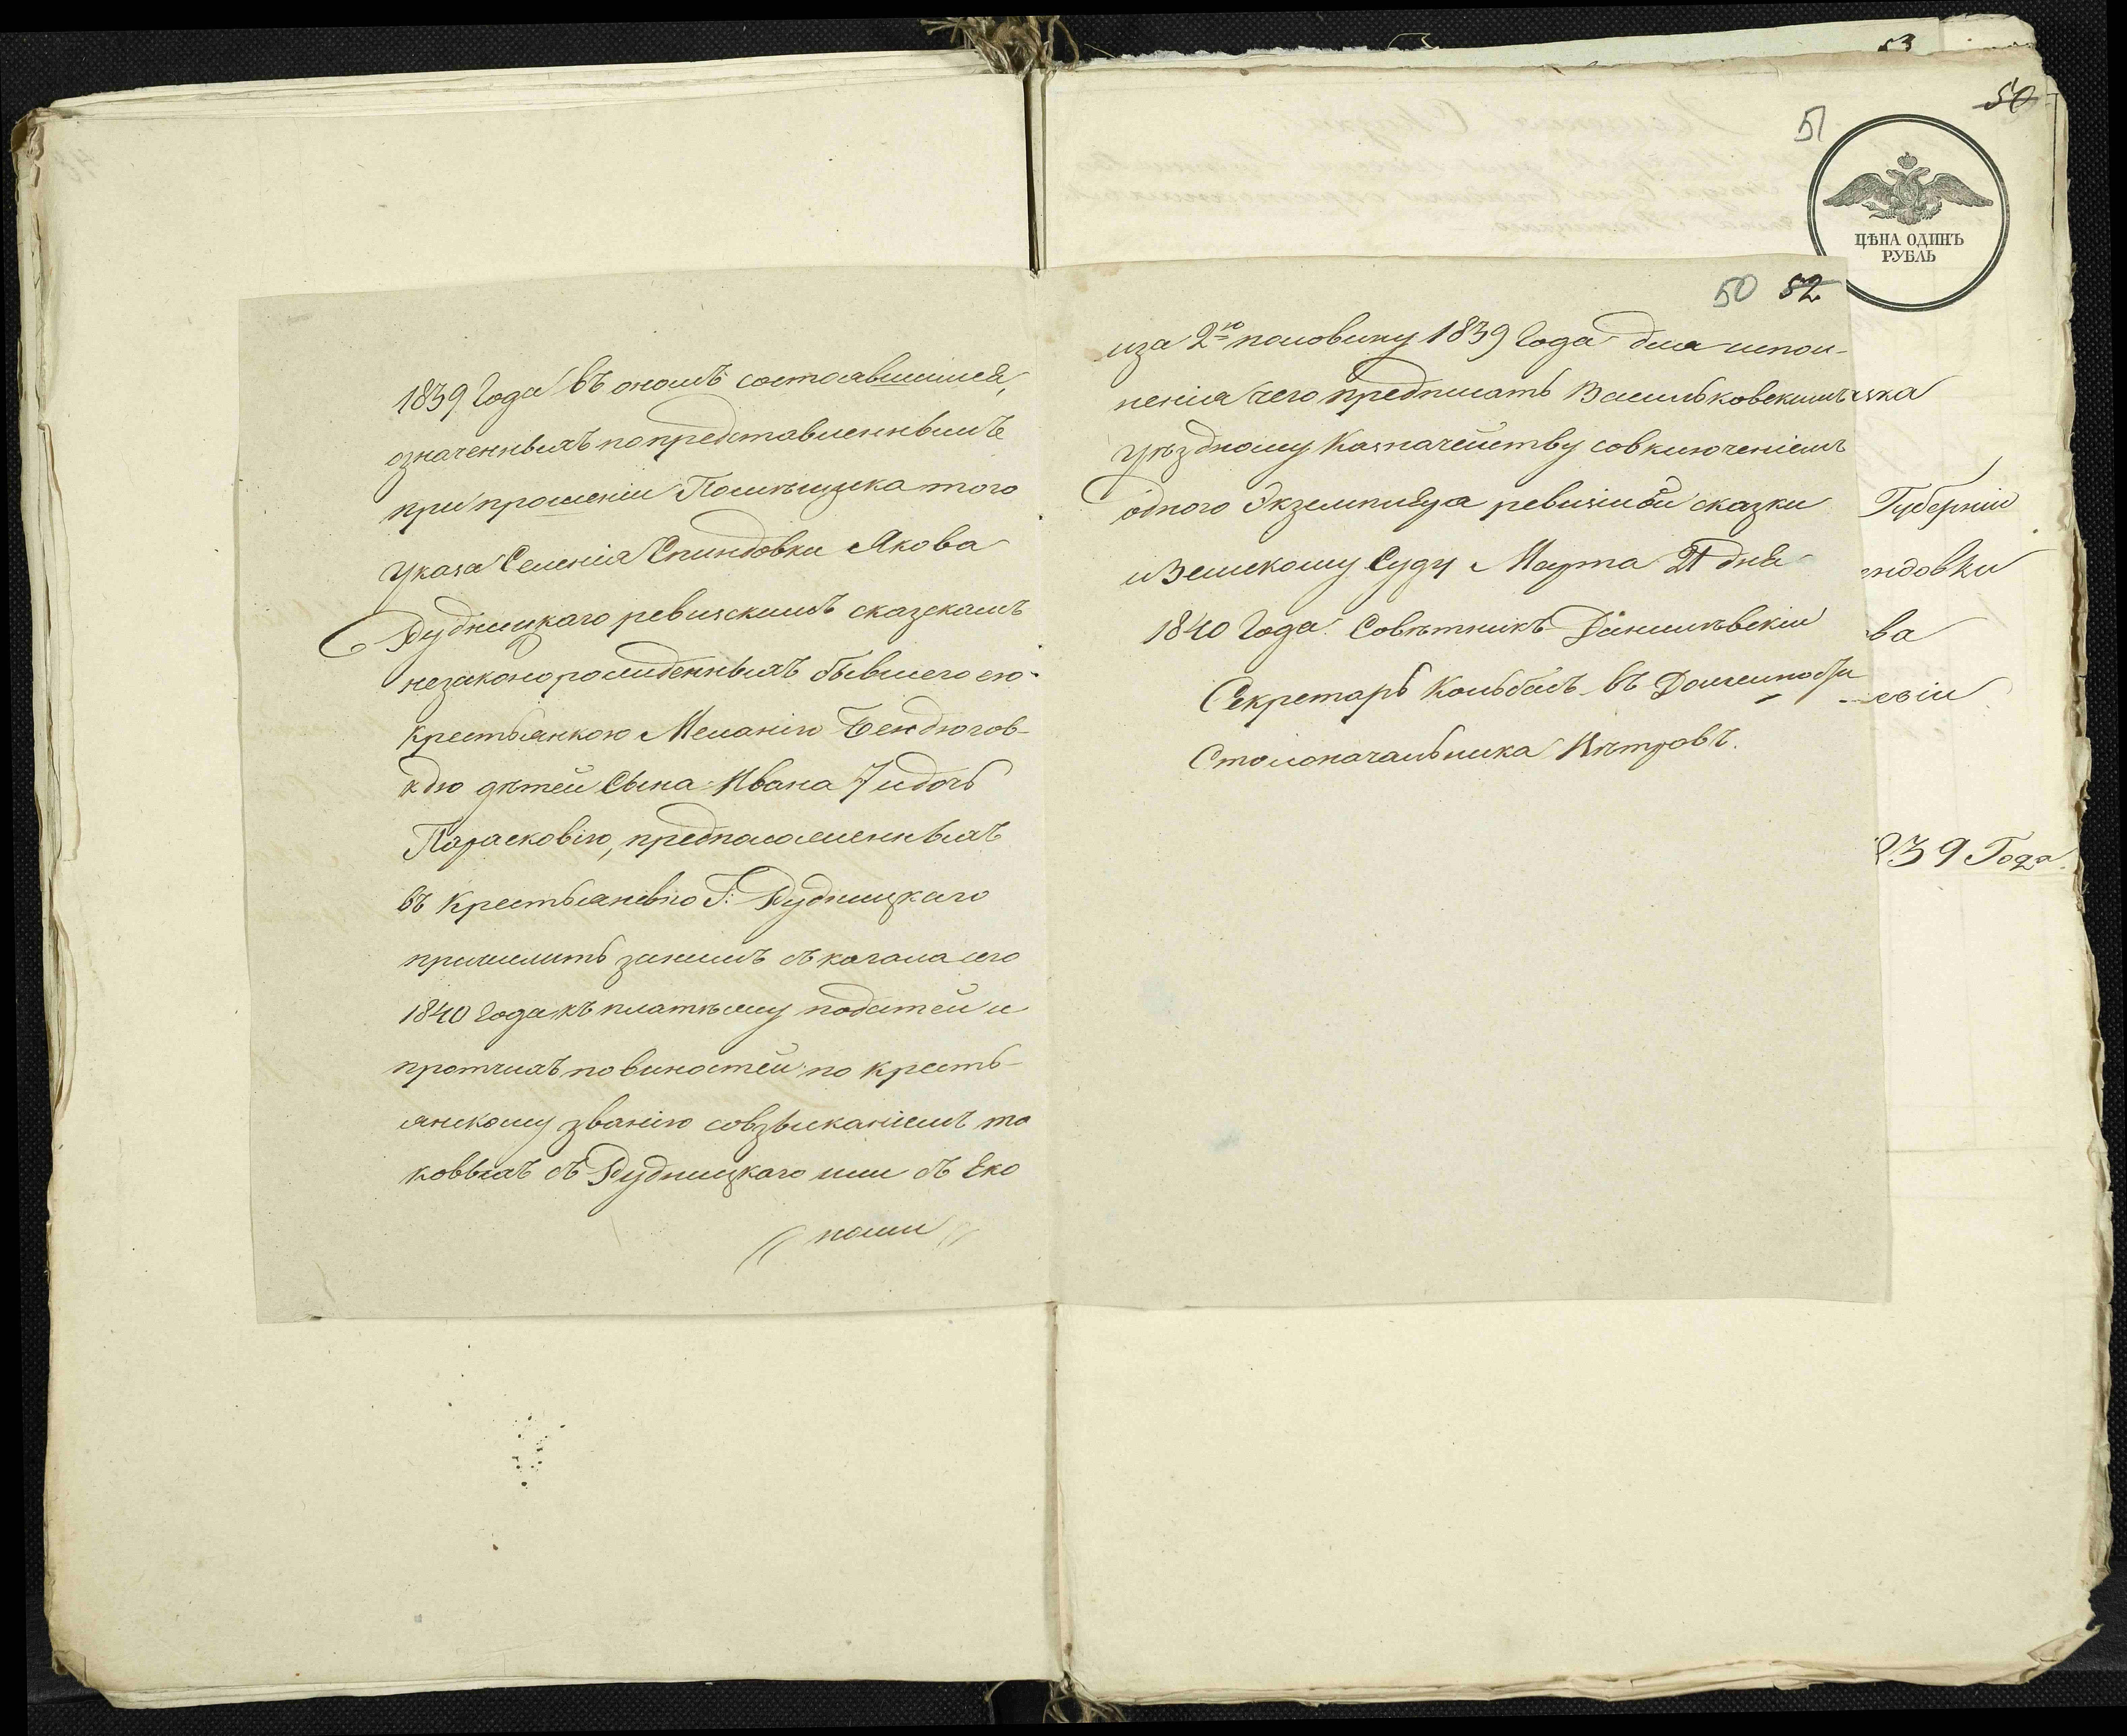 1839 года въ ономъ состоявшимся,
означенныхъ по представленнымъ
при прошеніи Помѣщика того
указа Селенія Спиндовки Якова
Рудницкаго ревизскимъ сказскамъ
незаконорожденныхъ бывшего его
крестьянкою Меланіею Бендюгов-
кою дѣтей Сына Ивана 7 и дочь
Парасковію, предположенныхъ
въ крестьянево Г: Рудницкаго
причислить занимъ съ качала сего
1840 года къ платѣжу податей и
протчихъ повиностей по кресть-
янскому званію совзысканіемъ та
ковыхъ съ Рудницкаго или съ Еко
номи
53
50
51
ЦѢНА ОДИНЪ
РУБЛЬ
50 52
иза 2ю половину 1839 года для испол-
ненія чего предписать Васильковскимъ
уѣздному Казначейству совключеніемъ
одного Экземпляра ревизкой сказки
и Земскому Суду Марта 21 дня
1840 года. Совѣтникъ Данилѣвскій
Секретарь Кольбасъ въ Должности
Столоначальника Пѣтровъ.
зка
Губерніи
ндовки
ва
839 Года